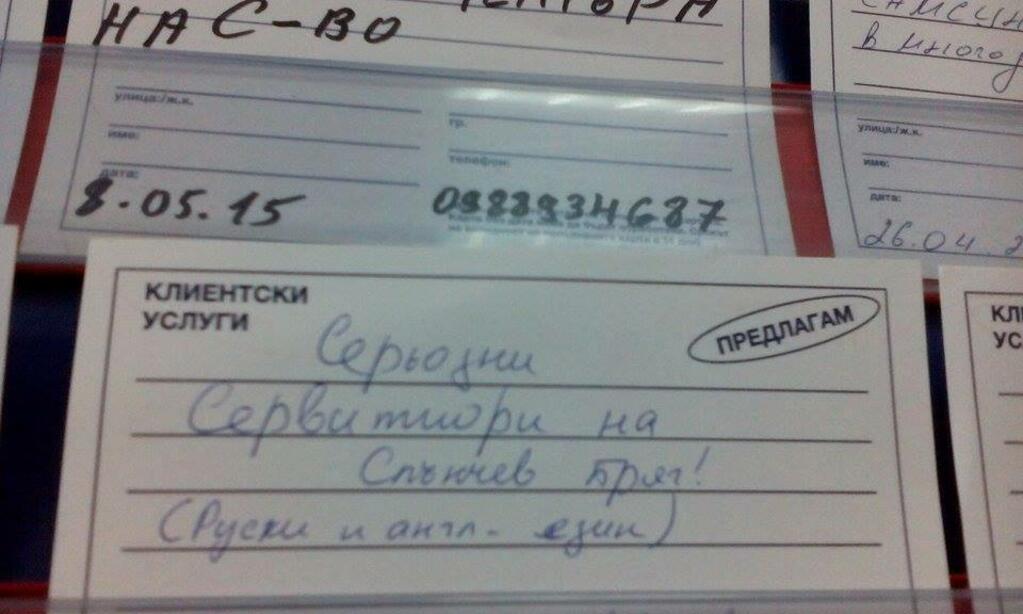 НА С-ВО
улица:/ж.к.
гр.
име:
телефон:
дата:
8.05.15
0988934687
в много
улица:/ж.к.
име:
дата:
26.04.2
КЛИЕНТСКИ
УСЛУГИ
ПРЕДЛАГАМ
Серьозни
Сервитиори на
Слънчев бряг!
(Руски и англ. език)
КЛ
УС